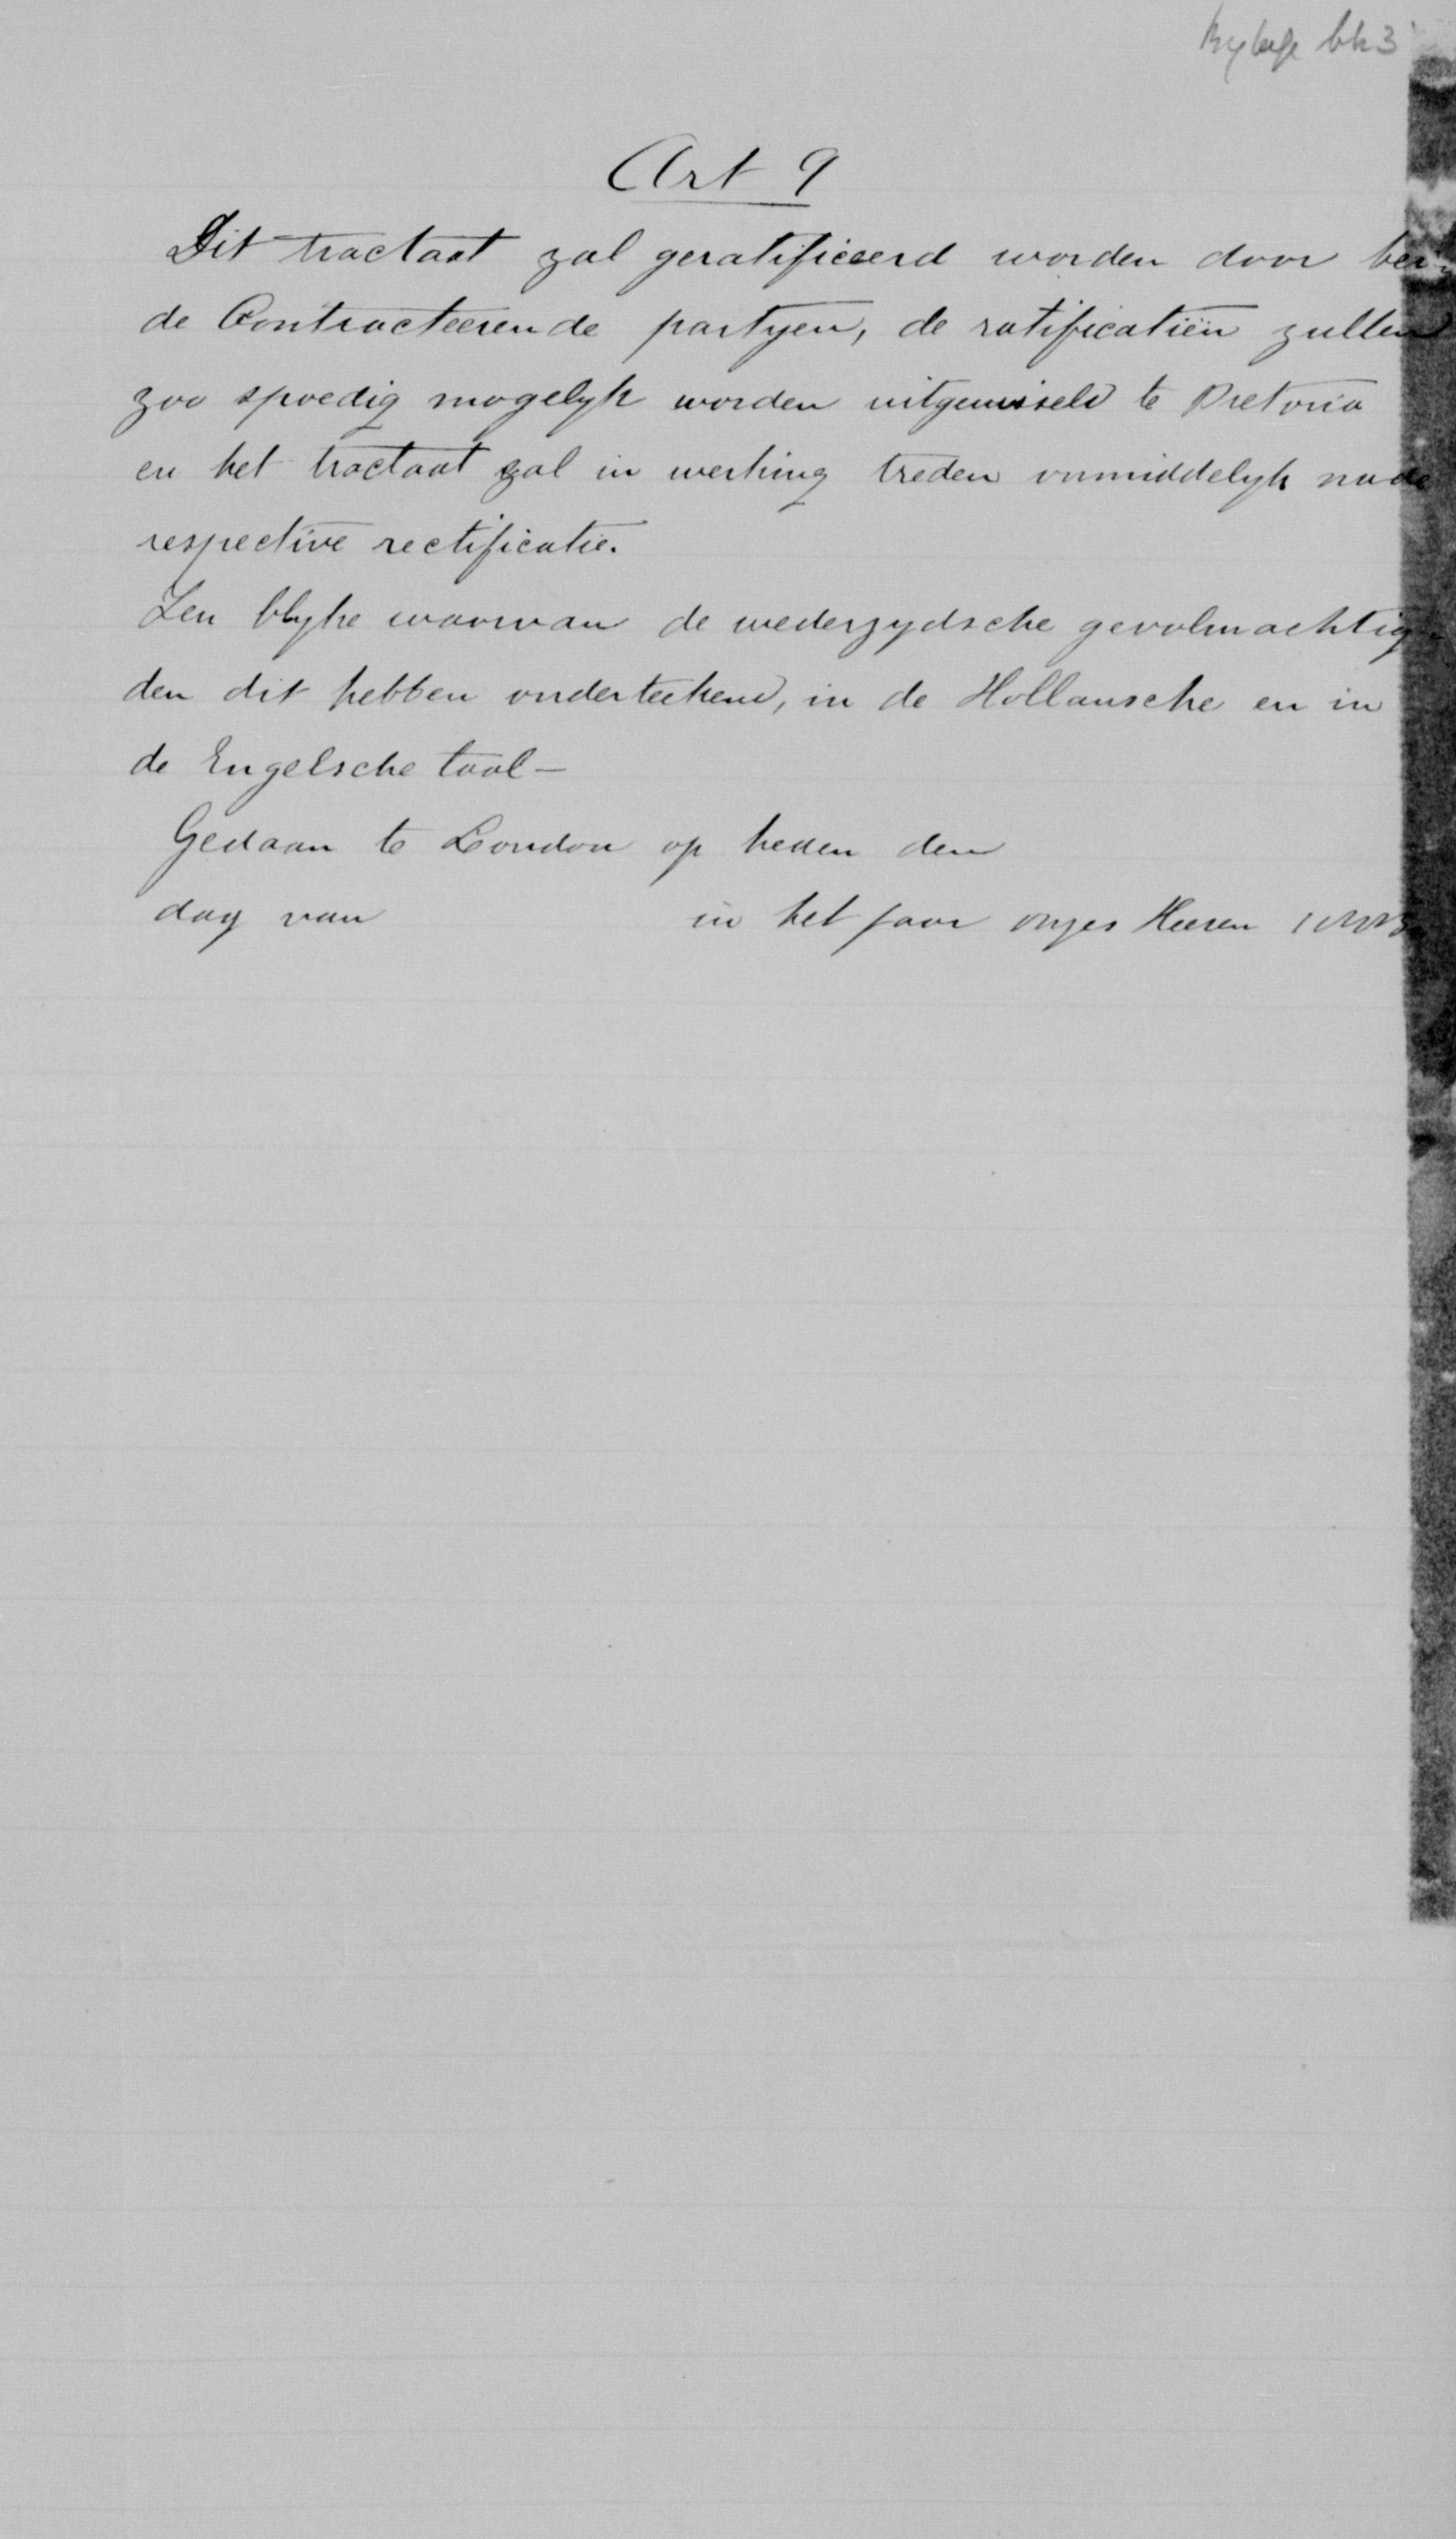 Bylage bh 3
Art 9
Dit tractaat zal geratificeerd worden door bei-
de Contracteerende partyen, de ratificatiën zullen
zoo spoedig mogelyk worden uitgewisseld te Pretoria
en het tractaat zal in werking treden onmiddelyk na de
respective rectificatie.
Ten blyke waarvan de wederzydsche gevolmachtig-
den dit hebben onderteekend, in de Hollansche en in
de Engelsche taal –
Gedaan te London op heden den
dag van in het jaar onzes Heeren 1883